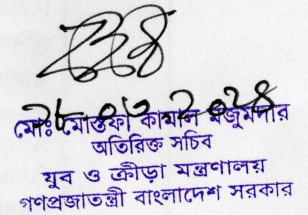 ২৮.০৬.২০২৪
মোঃ মোস্তফা কামাল মজুমদার
অতিরিক্ত সচিব
যুব ও ক্রীড়া মন্ত্রণালয়
গণপ্রজাতন্ত্রী বাংলাদেশ সরকার